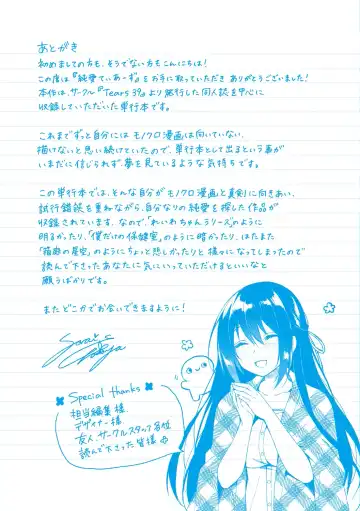 あとがき
初めましての方も、そうでない方もこんにちは!
この度は『純愛てぃあーず』をお手に取っていただき ありがとうございました!
本作は、サークル『Tears39』より発行した同人誌を中心に
収録していただいた単行本です。
これまでずっと自分には モノクロ漫画は向いていない、
描けないと思い続けていたので、単行本として出るという事が
いまだに信じられず、夢を見ているような気持ちです。
この単行本では、そんな自分がモノクロ漫画と真剣に向きあい、
試行錯誤を重ねながら、自分なりの純愛を探した作品が
収録されています。なので、「れいわちゃんシリーズ」のように
明るかったり、「僕だけの保健室」のように暗かったり、はたまた
「箱庭の星空」のようにちょっと悲しかったりと様々になってしまったので
読んで下さったあなたに気にいっていただけるといいなと
願うばかりです。
またどこかでお会いできますように!
Special thanks
担当編集様
デザイナー様
友人、サークルスタッフ各位
読んで下さった皆様